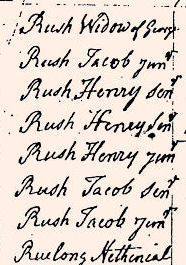 Rush Widow of George
Rush Jacob junr
Rush Henry senr
Rush Henry senr
Rush Henry junr
Rush Jacob senr
Rush Jacob junr
Ruelong Nethenial